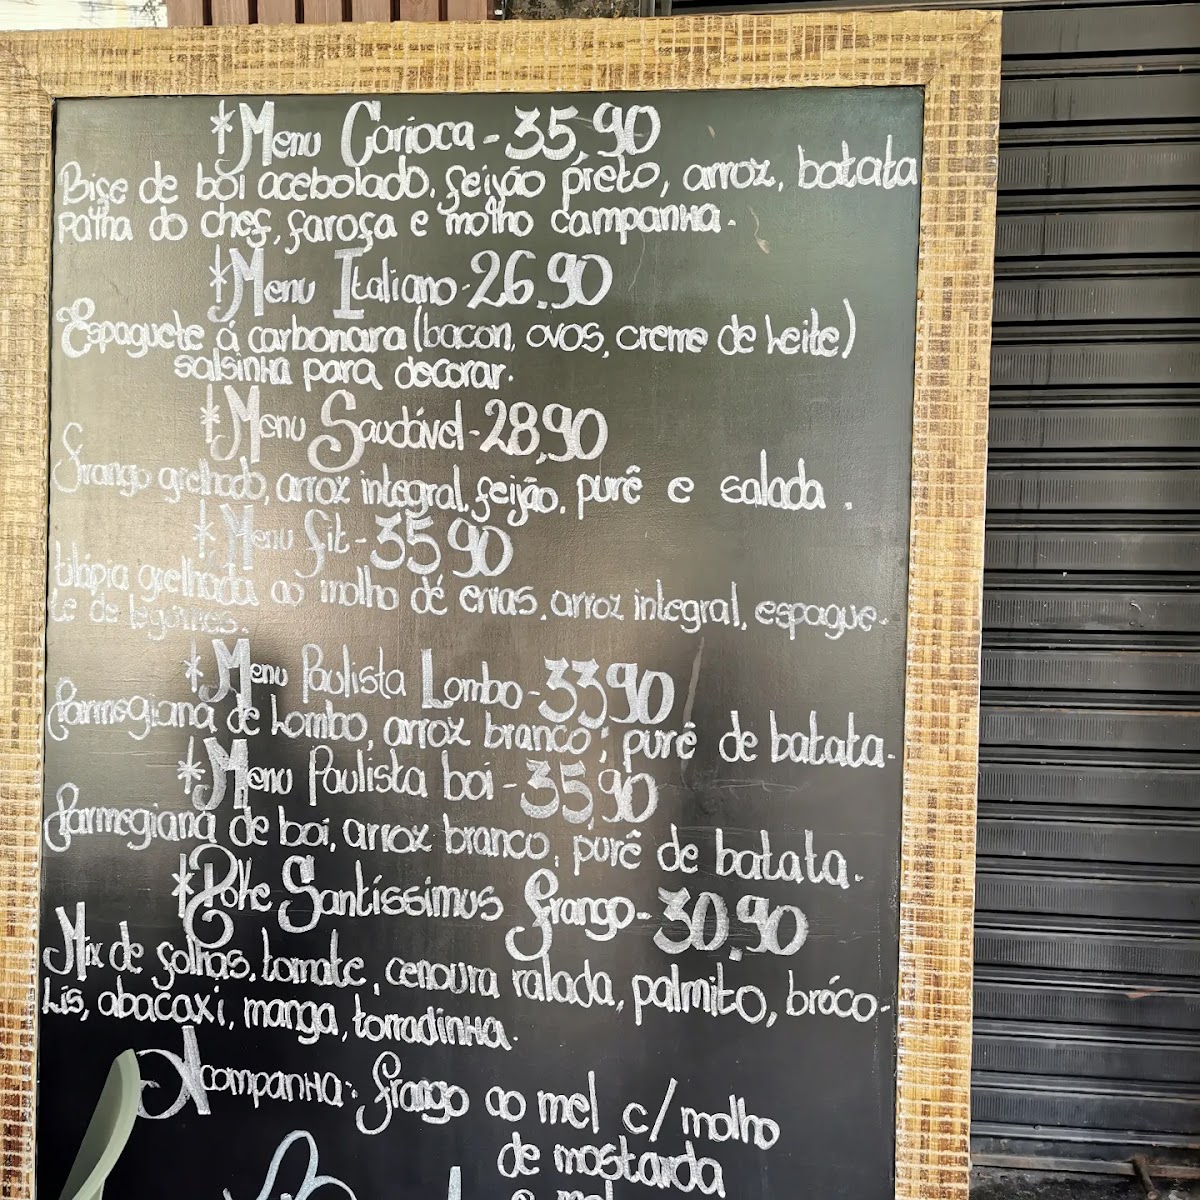 *Menu Carioca - 35,90
Bife de boi acebolado, feijão preto, arroz, batata
palha do chef, farofa e molho campanha.
*Menu Italiano - 26,90
Espaguete á carbonara (bacon, ovos, creme de leite)
salsinha para decorar.
*Menu Saudável - 28,90
Frango grelhado, arroz integral, feijão, purê e salada.
*Menu fit - 35,90
tilápia grelhada ao molho dé ervas, arroz integral, espague-
te de legumes.
*Menu Paulista Lombo - 33,90
Parmegiana de Lombo, arroz branco, purê de batata.
*Menu Paulista boi - 35,90
Parmegiana de boi, arroz branco, purê de batata.
*Poke Santíssimus frango - 30,90
Mix de folhas, tomate, cenoura ralada, palmito, bróco-
lis, abacaxi, manga, torradinha.
Acompanha: frango ao mel c/ molho
de mostarda
e mel